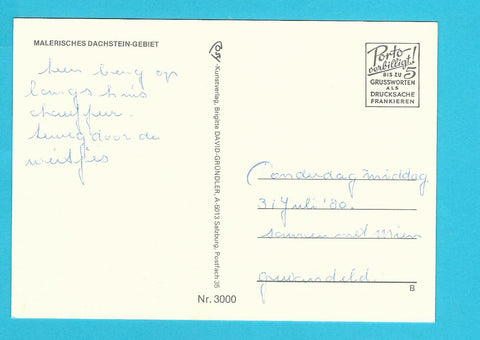 MALERISCHES DACHSTEIN-GEBIET
berg op
langs huis
chauffeur.
terug door de
weitjes
-Kunstverlag, Brigitte DAVID-GRÜNDLER, A-5013 Salzburg, Postfach 35
Nr. 3000
Porto
verbilligt!
BIS ZU 5
GRUSSWORTEN
ALS
DRUCKSACHE
FRANKIEREN
Donderdag middag
31 Juli '80.
samen met Mien
gewandeld.
B